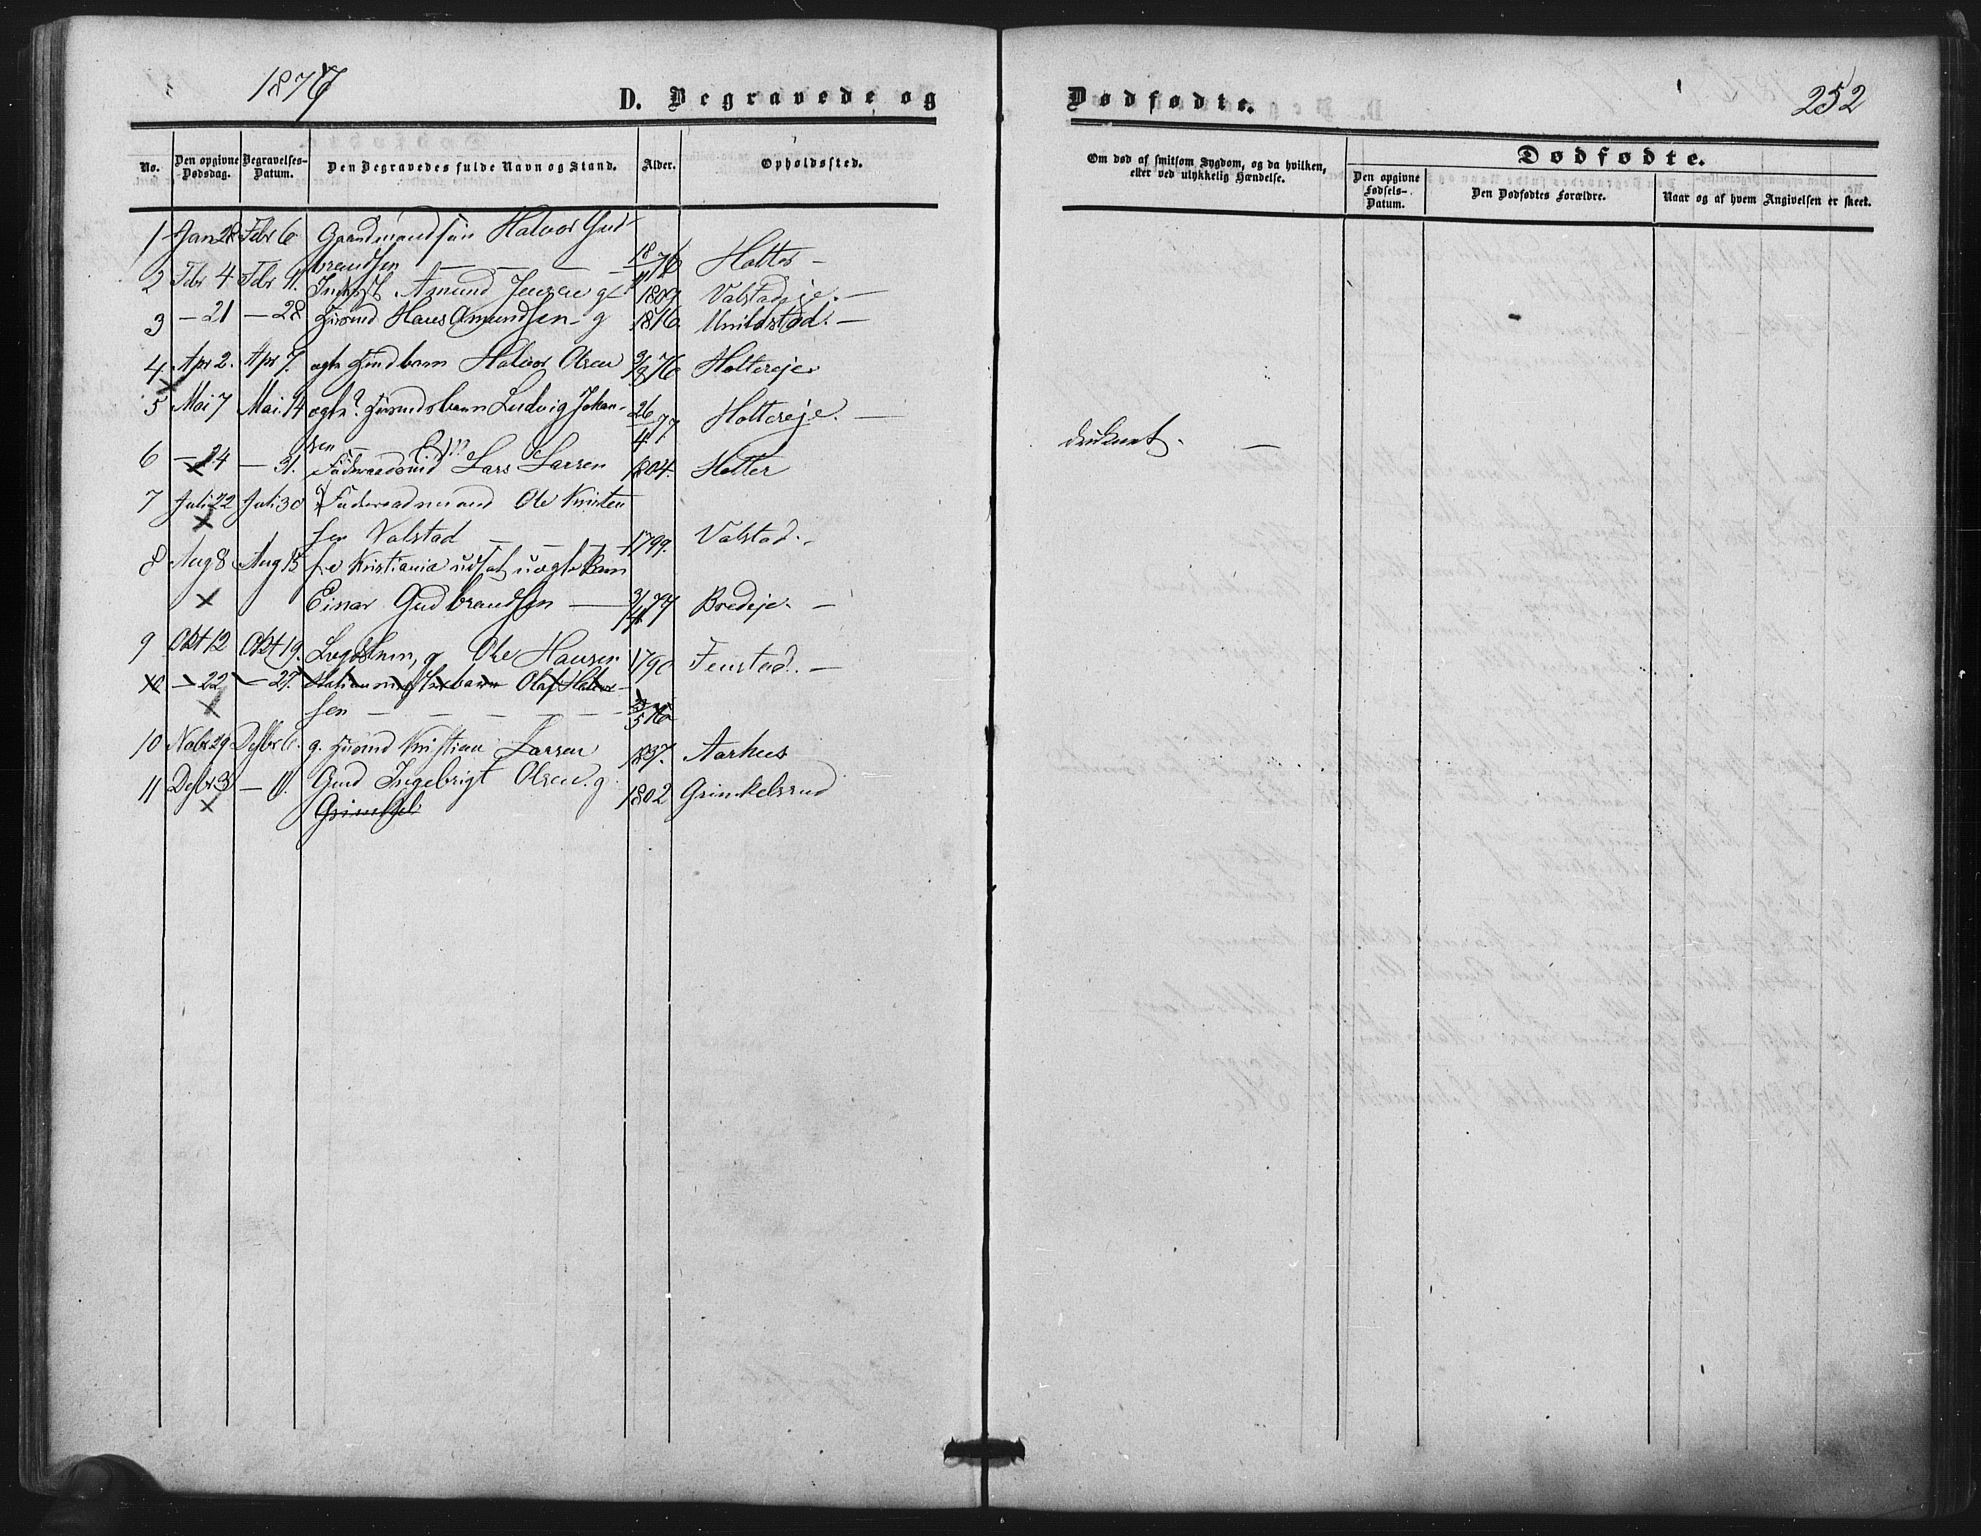 1877
D. Begravede og
Dødfødte.
252
No.
Den opgivne Dødsdag.
Begravelses-Datum.
Den Begravedes fulde Navn og Stand.
Alder.
Opholdssted.
Om død af smitsom Sygdom, og da hvilken, eller ved ulykkelig Hændelse.
Dødfødte.
Den opgivne Fødsels-Datum.
Den Dødfødtes Forældre.
Naar og af hvem Angivelsen er skeet.
1 Jan 28 Febr 6 Gaardmandssøn Halvor Gud-
brandsen — — — 18/11 76 Holter —
2 Febr 4 Febr 11. Amund Jensen g 1809 Valstadeje. —
3 — 21 — 28 Husmd Hans Amundsen g 1816 —
4 Apr 2. Apr 7. ægte Husmdbarn Halvor Olsen 76 Holtereje
5 Mai 7 Mai 14 ægte? Husmdsbarn Ludvig Johan-
sen — 26/4 77 Holtereje. — druknet. —
6 — 24 — 31. Føderaadsmd Lars Larsen 1804. Holter
7 Juli 22 Juli 30 Føderaadsmand Ole Kristen
sen Valstad — — — 1799. Valstad. —
8 Aug 8 Aug 15 fra Kristiania udsat uægte Barn
Einar Gudbrandsen — 77 Bredeje. —
9 Okt 12 Okt 19. Lægdslem, g Ole Hansen 1790 Fenstad. —
— 22 — 27. Olaf Halvor-
sen — — — — —
10 Nobr 29 Desbr 6. g. Husmd Kristian Larsen 1837. Aarhus
11 Desbr 3 — 11. Gmd Ingebrigt Olsen g. 1802 Grinkelsrud
Grinkel